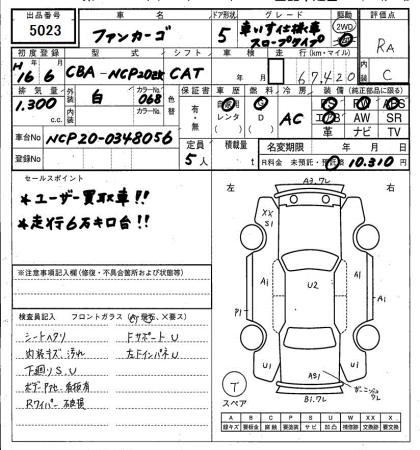 出品番号 車名 ドア形状 グレード 駆動 評価点
5023 ファンカーゴ 5 車いす仕様車 スロープタイプ 2WD RA
初度登録 型式 シフト 車検 走行(km・マイル) 内装
H16年6月 CBA-NCP20改 CAT 年 月 67,420 C
排気量 外装 カラーNo. 色替 保証書 車歴 燃料 冷房 装備(純正部品に限る)
1.300 c.c. 白 068 有・無 自家用 G AC PS PW ABS
内装 カラーNo. レンタ D エアB AW SR
革 ナビ TV
車台No NCP20-0348056 定員 積載量 名変期限 年 月 日
登録No 5人 t R料金 未預託・預託済 10,310円
セールスポイント
*ユーザー買取車!!
*走行6万キロ台!!
左 右
A3.7L
XX
S1
A1 U2 A1
P1
U1 AS1 U1
B1.7L
スペア
※注意事項記入欄(修復・不具合箇所および状態等)
検査員記入 フロントガラス
シートヘタリ Fサポート U
内装キズ、汚れ 左FインパネU
下廻りS.U
ボデーP他、看板有
Rワイパー破損
A B C P S U W XX X
線キズ 要板金 腐蝕 要塗装 サビ 凹凸 補修跡 交換跡 要交換